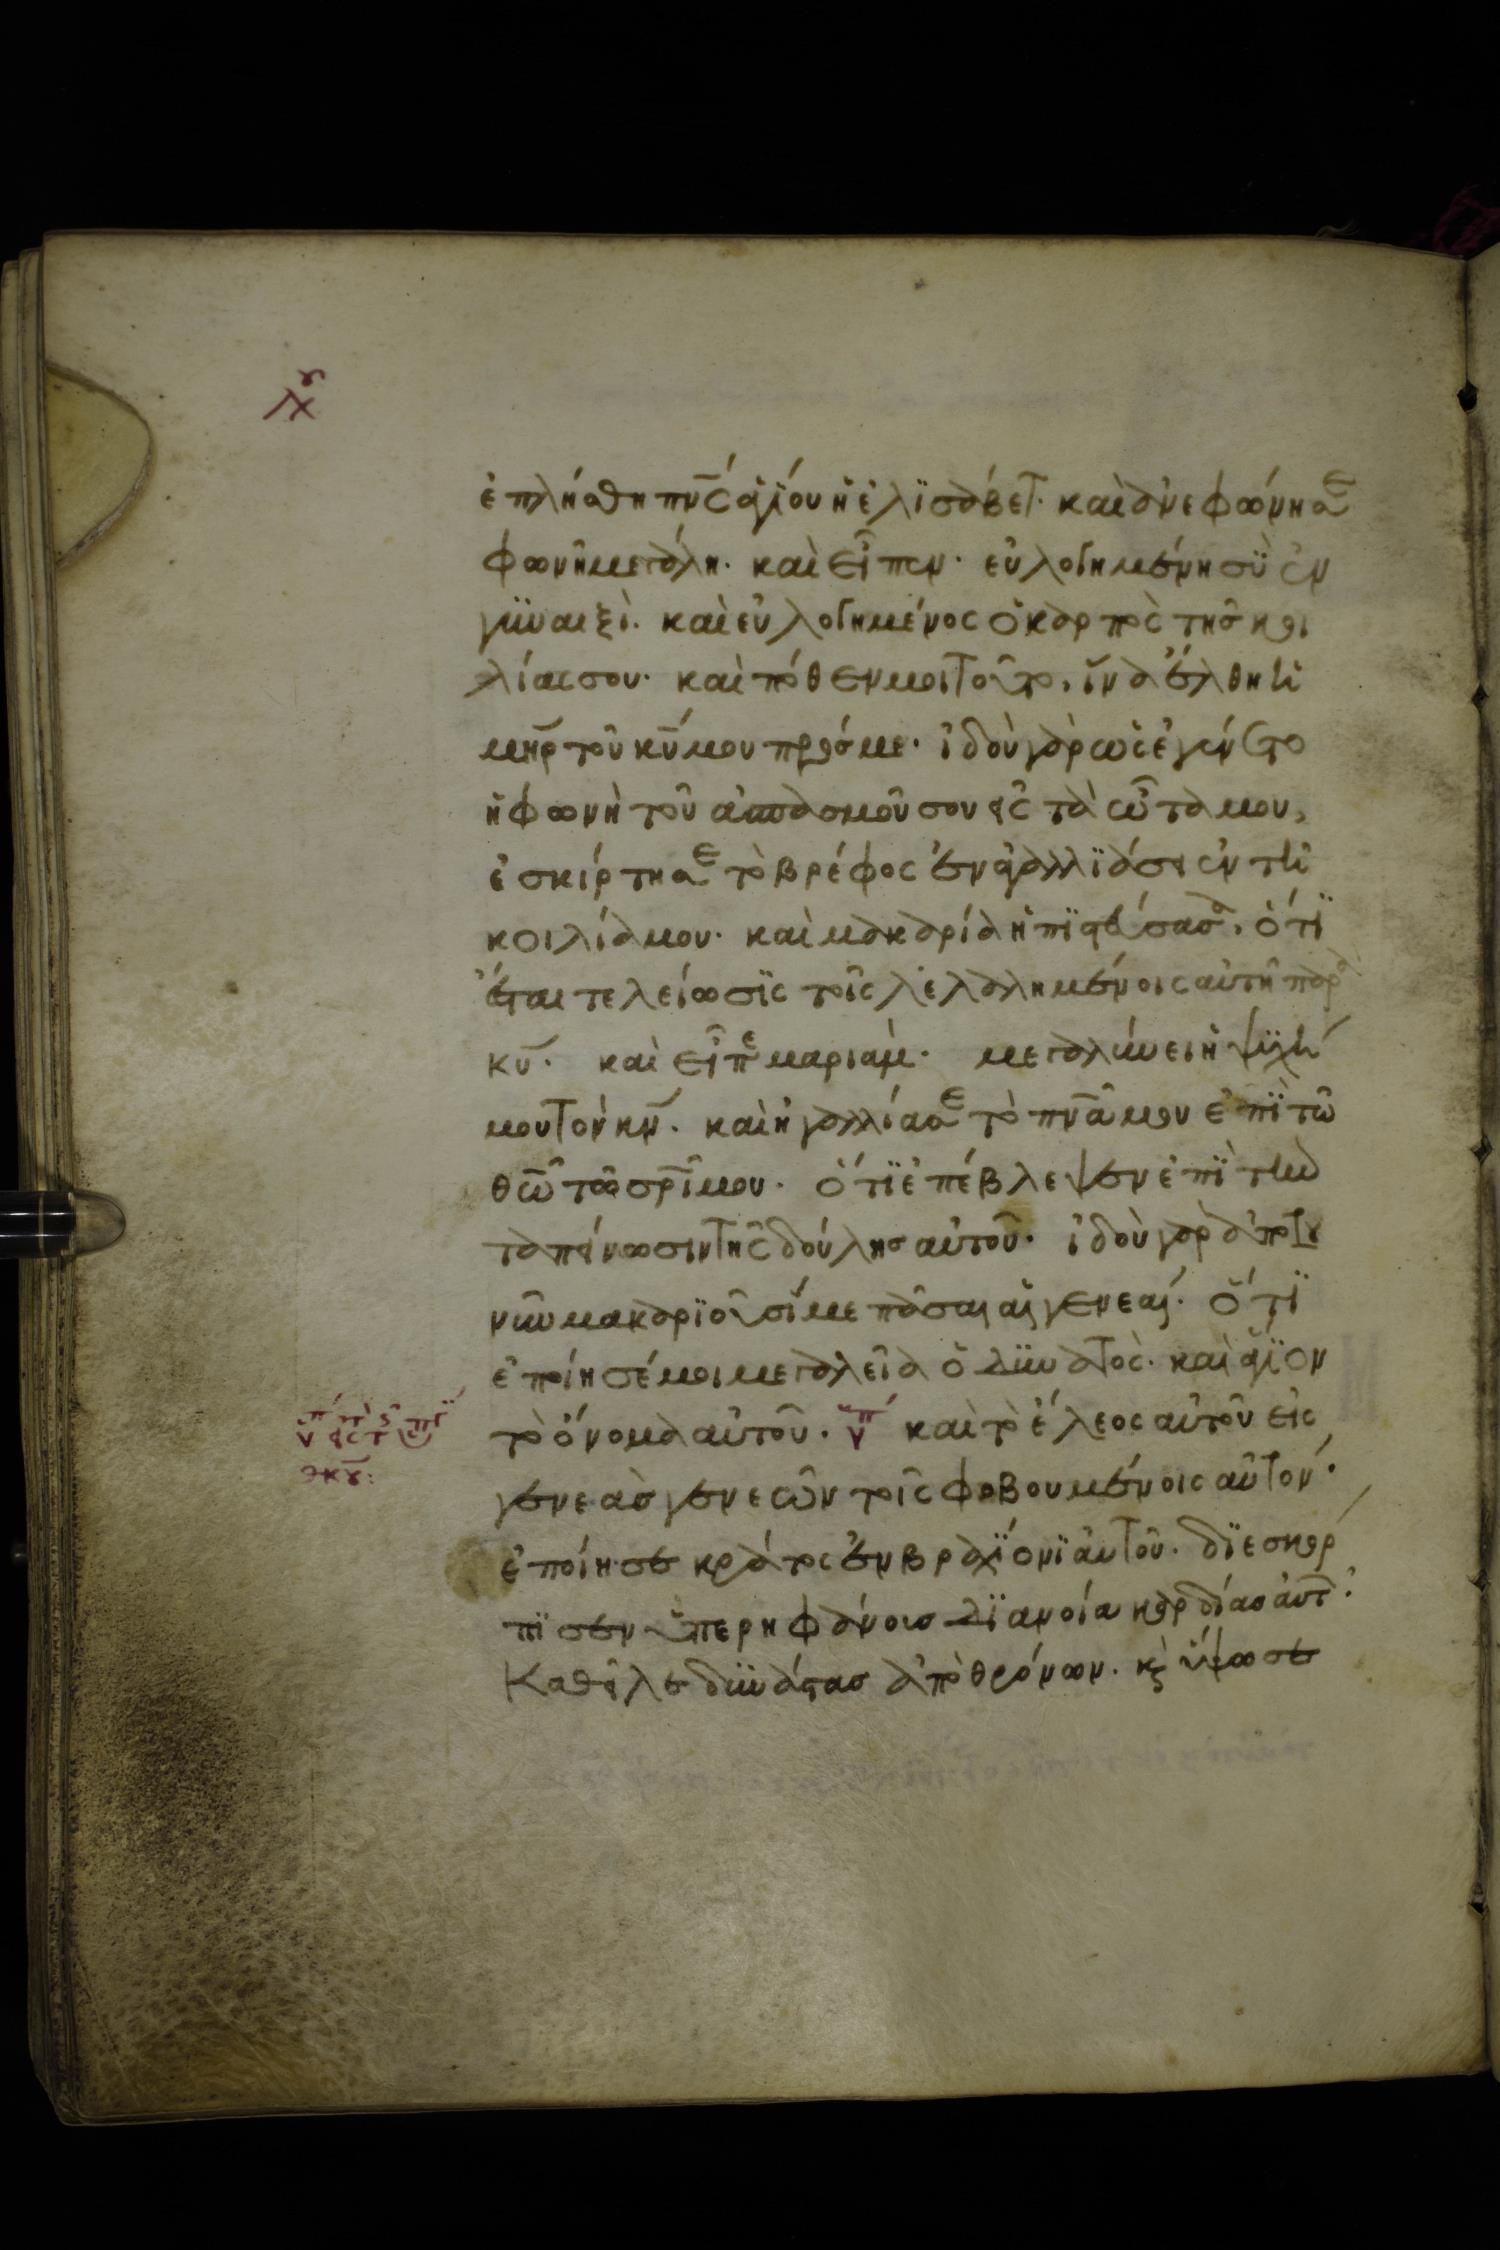 ἐπλήσθη πν̅ς ἁγίου ἡ ἐλϊσάβετ· καὶ ἀνεφώνησε
φωνῆ μεγάλη· καὶ εἶπεν· εὐλογημένη σὺ ἐν
γϋναιξὶ· καὶ εὐλογημένος ὁ καρπὸς τῆς κοι
λίας σου· καὶ πόθεν μοι τοῦτο, ἵνα ἔλθη ἡ
μη̅ρ τοῦ κ̅υ μου πρός με· ἰδοὺ γὰρ ὡς ἐγένετο
ἡ φωνὴ τοῦ ἀσπασμοῦ σου εἰς τὰ ὦτα μου,
ἐσκίρτησε τὸ βρέφος ἐν ἀγαλλϊάσει ἐν τῆ
κοιλία μου· καὶ μακαρία ἡ πϊστεύσασα, ὅτϊ
ἔσται τελείωσϊς τοῖς λελαλημένοις αὐτῆ παρὰ
κ̅υ· καὶ εἶπε μαριάμ· μεγαλύνει ἡ ψϋχή
μου τὸν κ̅ν· καὶ ἠγαλλίασε τὸ πν̅α μου ἐπϊ τῶ
θ̅ω τῶ σρ̅ι μου· ὅτϊ ἐπέβλεψεν ἐπϊ τὴν
ταπείνωσιν τῆς δούλης αὐτοῦ· ἰδοὺ γὰρ ἀπὸ τοῦ
νῦν μακαρϊοῦσί με πᾶσαι αἱ γενεαί· ὅτϊ
ἐποίησέ μοι μεγαλεῖα ὁ δϋνατὸς· καὶ ἅγϊον
τὸ ὄνομα αὐτοῦ· καὶ τὸ ἔλεος αὐτοῦ εἰς
γενεὰς γενεῶν τοῖς φοβουμένοις αὐτόν·
ἐποίησε κράτος ἐν βραχίονϊ αὐτοῦ· δϊεσκόρ
πϊσεν ὑπερηφάνους δϊανοία καρδίας αὐτῶν·
Καθεῖλε δϋνάστας ἀπὸ θρόνων· κ̀ ὕψωσε